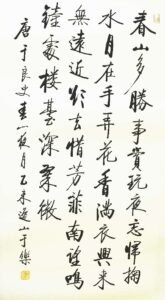 春山多勝事賞玩夜忘歸掬
水月在手弄花香滿衣興來
無遠近欲去惜芳菲南望鳴
鐘處樓臺深翠微
唐于良史春山夜月乙未逸山于樂